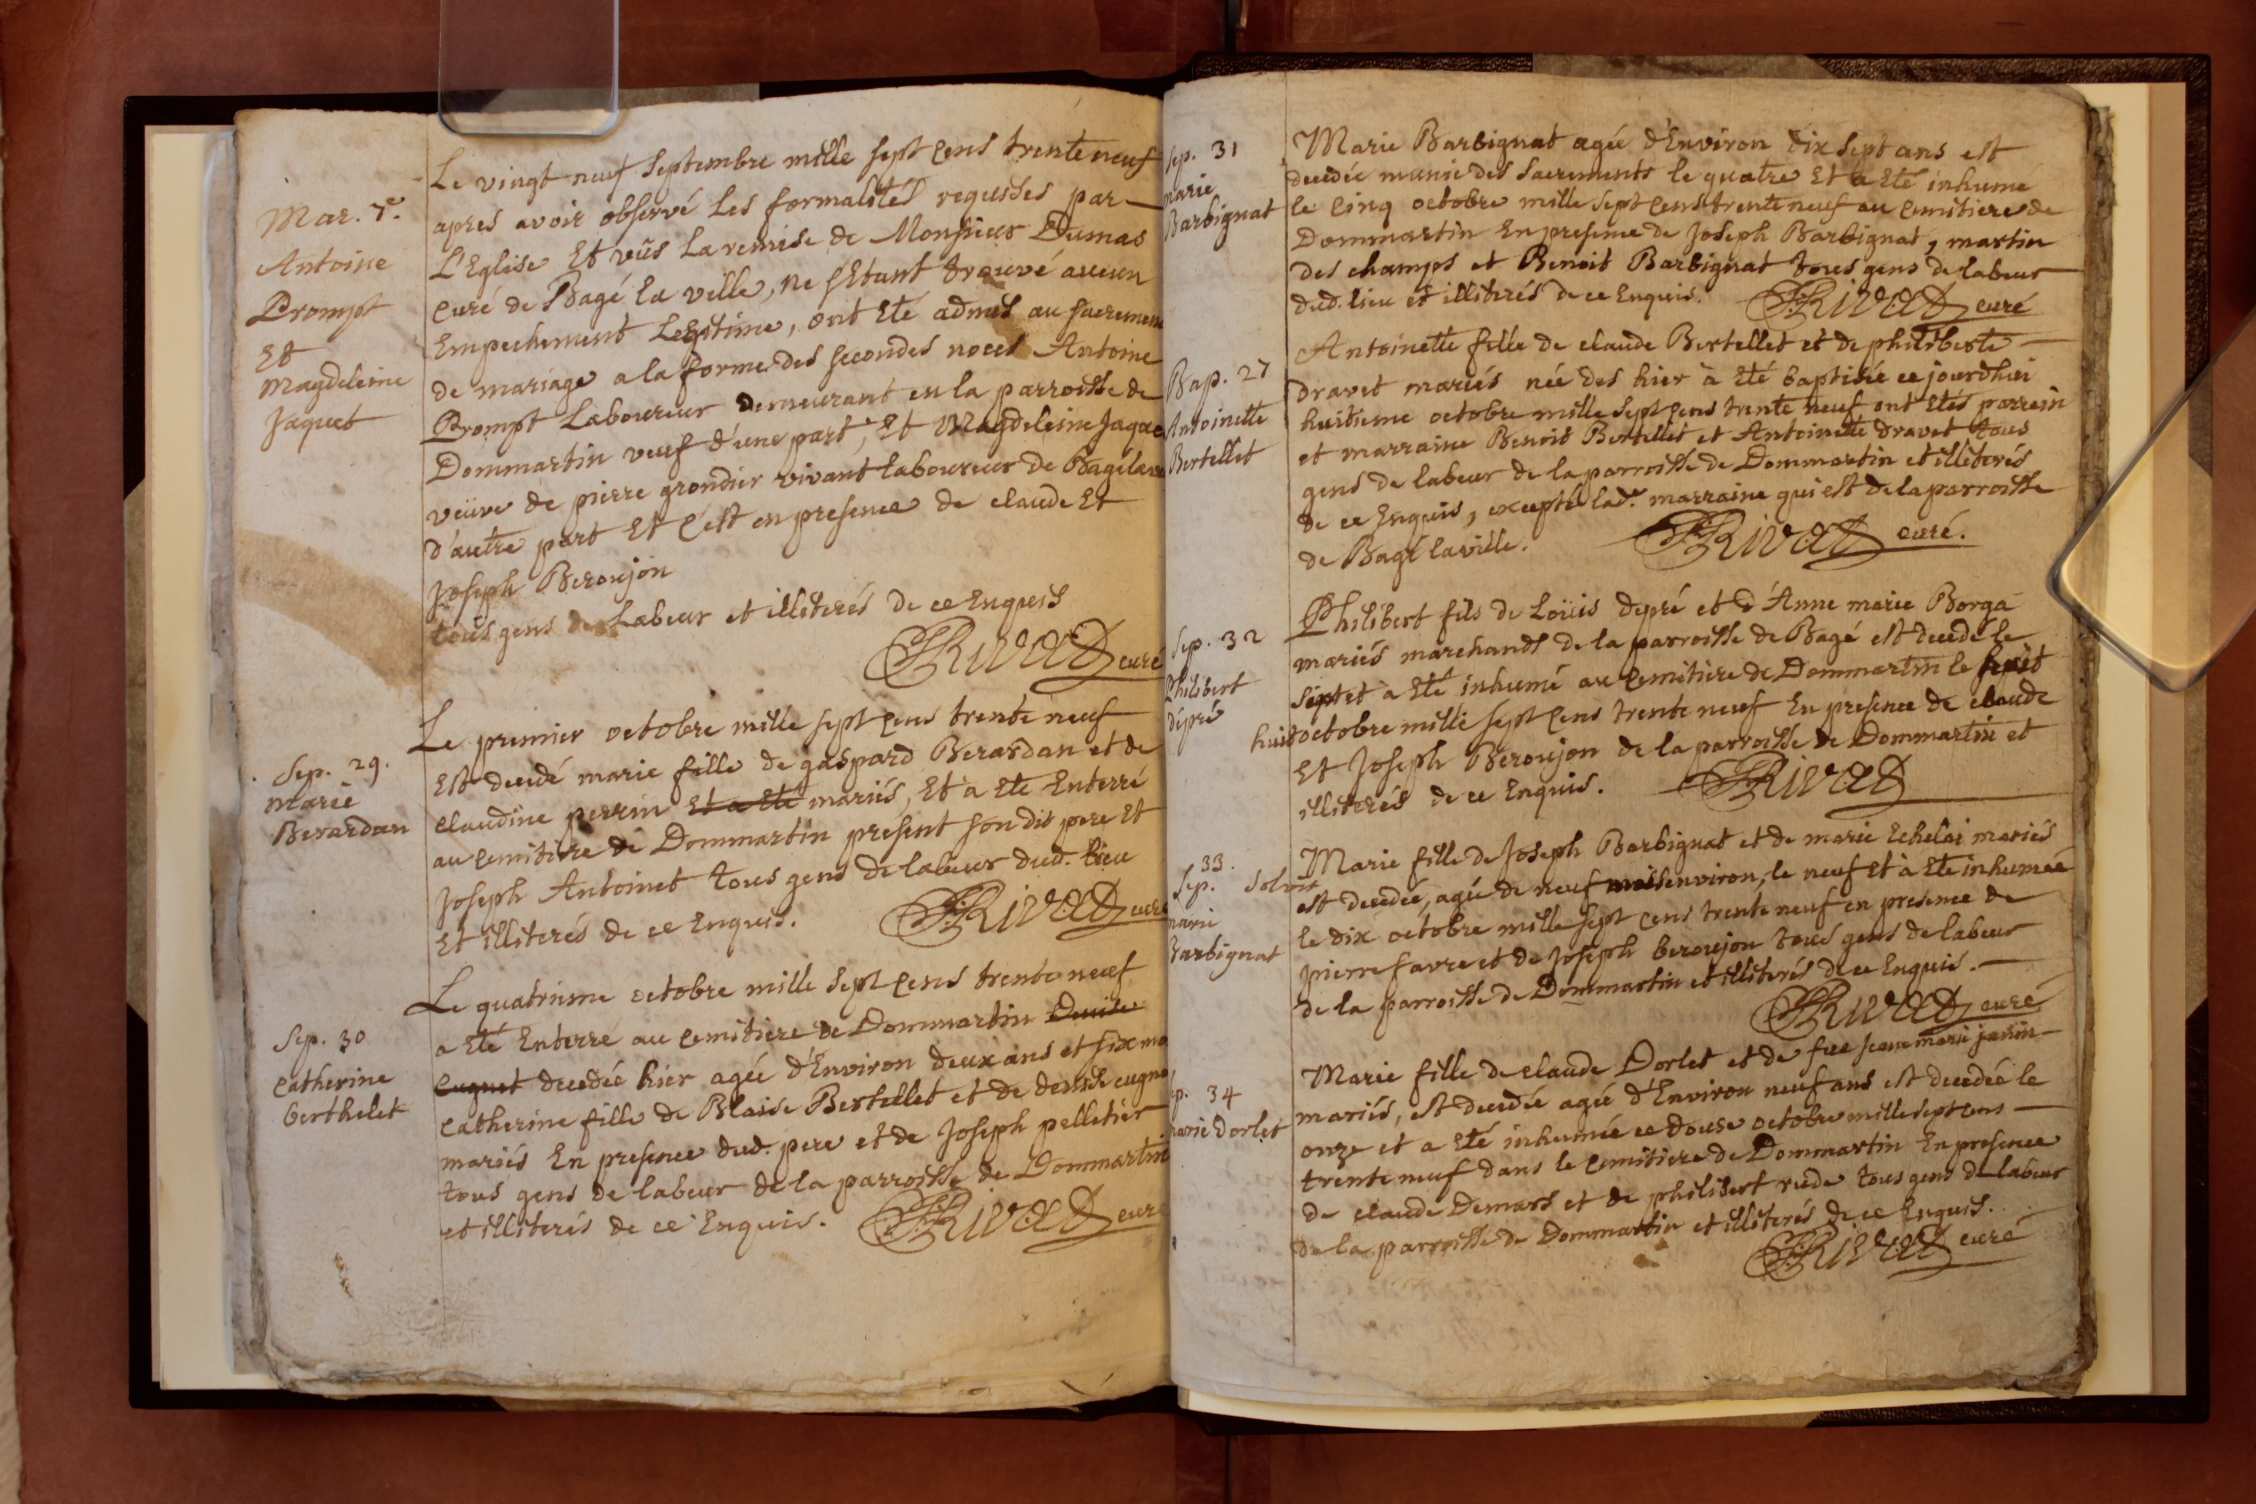 Mar. 7e.
Antoine
Prompt
Et
Magdeleine
Jaquet
Le vingt neuf Septembre mille sept cens trente neuf
apres avoir observé les formalités requises par
L'Eglise Et vûs la remise de Monsieur Dumas
curé de Bagé la ville, ne s'Etant trouvé aucun
Empechement Legitime, ont Eté admis au sacrement
de mariage a la forme des secondes noces Antoine
Prompt Laboureur demeurant en la parroisse de
Dommartin veuf d'une part, Et Magdeleine Jaquet
veuve de pierre grondier vivant laboureur de Bagé
d'autre part Et c'est en presence de claude Et
Joseph Beroujon
tous gens de Labeur et illiterés de ce Enquis
Rivat curé
Sep. 29.
Marie
Berardan
Le premier octobre mille sept cens trente neuf
Est decedé marie fille de gaspard Berardan et de
claudine perrin Et a Eté mariés, Et à Eté Enterré
au cemitiere de Dommartin présent son dit pere Et
Joseph Antoinet tous gens de labeur dud. lieu
Et illiterés de ce Enquis.
Rivat curé
Sep. 30
Catherine
berthelet
Le quatrieme octobre mille sept cens trente neuf
a Eté Enterré au cemitiere de Dommartin Denise
Cugnet decedée hier agée d'Environ deux ans et six mo
Catherine fille de Blaise Bertellet et de denise cugne
mariés En presence dud. pere et de Joseph pelletier
tous gens de labeur de la parroisse de Dommartin
et illiterés de ce Enquis.
Rivat curé
Sep. 31
marie
Barbignat
Marie Barbignat agée d'Environ dix sept ans est
decedée munie des Sacrements le quatre Et a Eté inhumé
le cinq octobre mille sept cens trente neuf au cemitiere de
Dommartin En presence de Joseph Barbignat, martin
des champs et Benoit Barbignat tous gens de labeur
dud. lieu et illiterés de ce Enquis.
Rivat curé
Bap. 27
Antoinette
Bertellet
Antoinette fille de claude Bertellet et de philiberte
dravet mariés née des hier à Eté baptisée ce jourdhui
huitieme octobre mille sept cens trente neuf ont Etés parrein
et marraine Benoit Bertellet et Antoinette dravet tous
gens de labeur de la parroisse de Dommartin et illiterés
de ce Enquis, excepté lad. marraine qui est de la parroisse
de Bagé la ville.
Rivat curé.
Sep. 32
Philibert
dépré
Philibert fils de Loüis depré et d'Anne marie Borga
mariés marchands de la parroisse de Bagé est decedé le
sept et à Eté inhumé au cemitiere de Dommartin le
huit octobre mille sept cens trente neuf En presence de claude
Et Joseph Beroujon de la parroisse de Dommartin et
illiterés de ce Enquis.
Rivat
33.
Sep. Solvit
marie
Barbignat
Marie fille de Joseph Barbignat et de marie Echelai mariés
est decedée, agée de neuf mois environ, le neuf Et à Eté inhumée
le dix octobre mille sept cens trente neuf en presence de
pierre favre et de Joseph beroujon tous gens de labeur
de la parroisse de Dommartin et illiterés de ce Enquis.
Rivat curé
Sep. 34
marie dorlet
Marie fille de claude Dorlet et de fue jeanne marie janin
mariés, est decedée agée d'Environ neuf ans est decedée le
onze et a Eté inhumée ce douse octobre mille sept cens
trente neuf dans le cemitiere de Dommartin En presence
de claude Demars et de philibert rude tous gens de labeur
de la parroisse de Dommartin et illiterés de ce Enquis.
Rivat curé